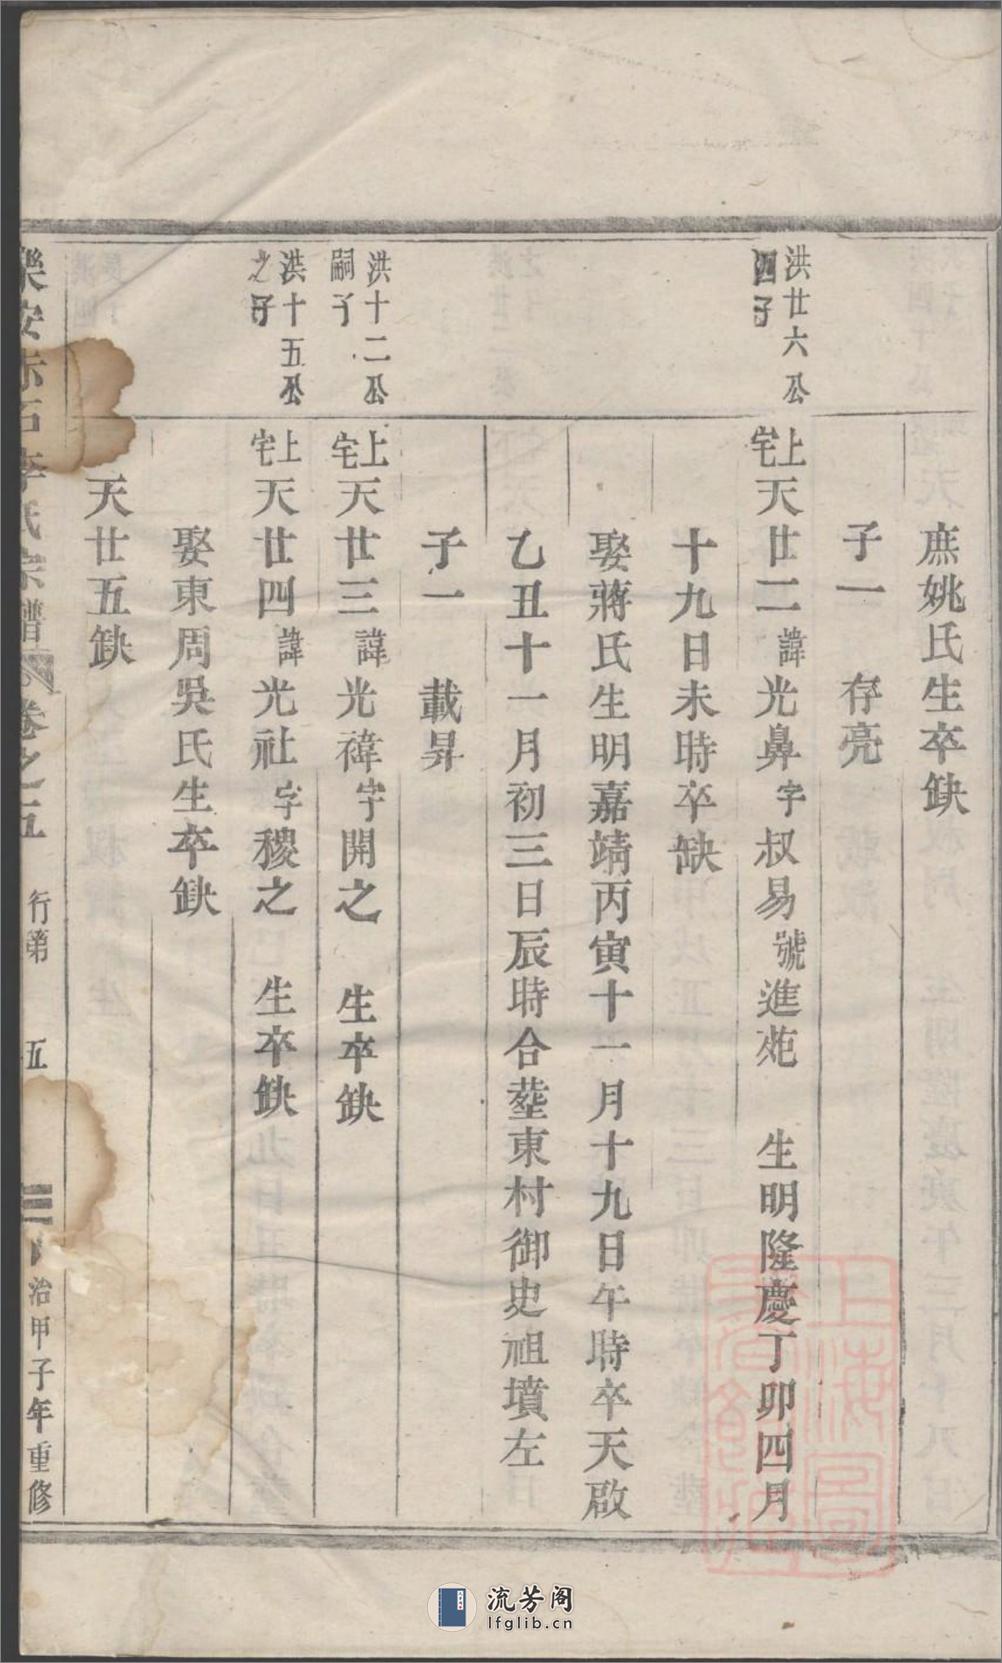 庶姚氏生卒缺
子一　存亮
洪廿六公
四子
上宅天廿二諱光鼻字叔易號進苑　生明隆慶丁卯四月
十九日未時卒缺
娶蔣氏生明嘉靖丙寅十一月十九日午時卒天啟
乙丑十一月初三日辰時合塟東村御史祖墳左
子一　載昇
洪十二公
嗣子
上宅天廿三諱光禕字開之　生卒缺
洪十五公
之子
上宅天廿四諱光社字稷之　生卒缺
娶東周吳氏生卒缺
天廿五缺
樂安赤石李氏宗譜
卷之五
行第　五
治甲子年重修
上海圖書館藏
流芳阁
lfglib.cn